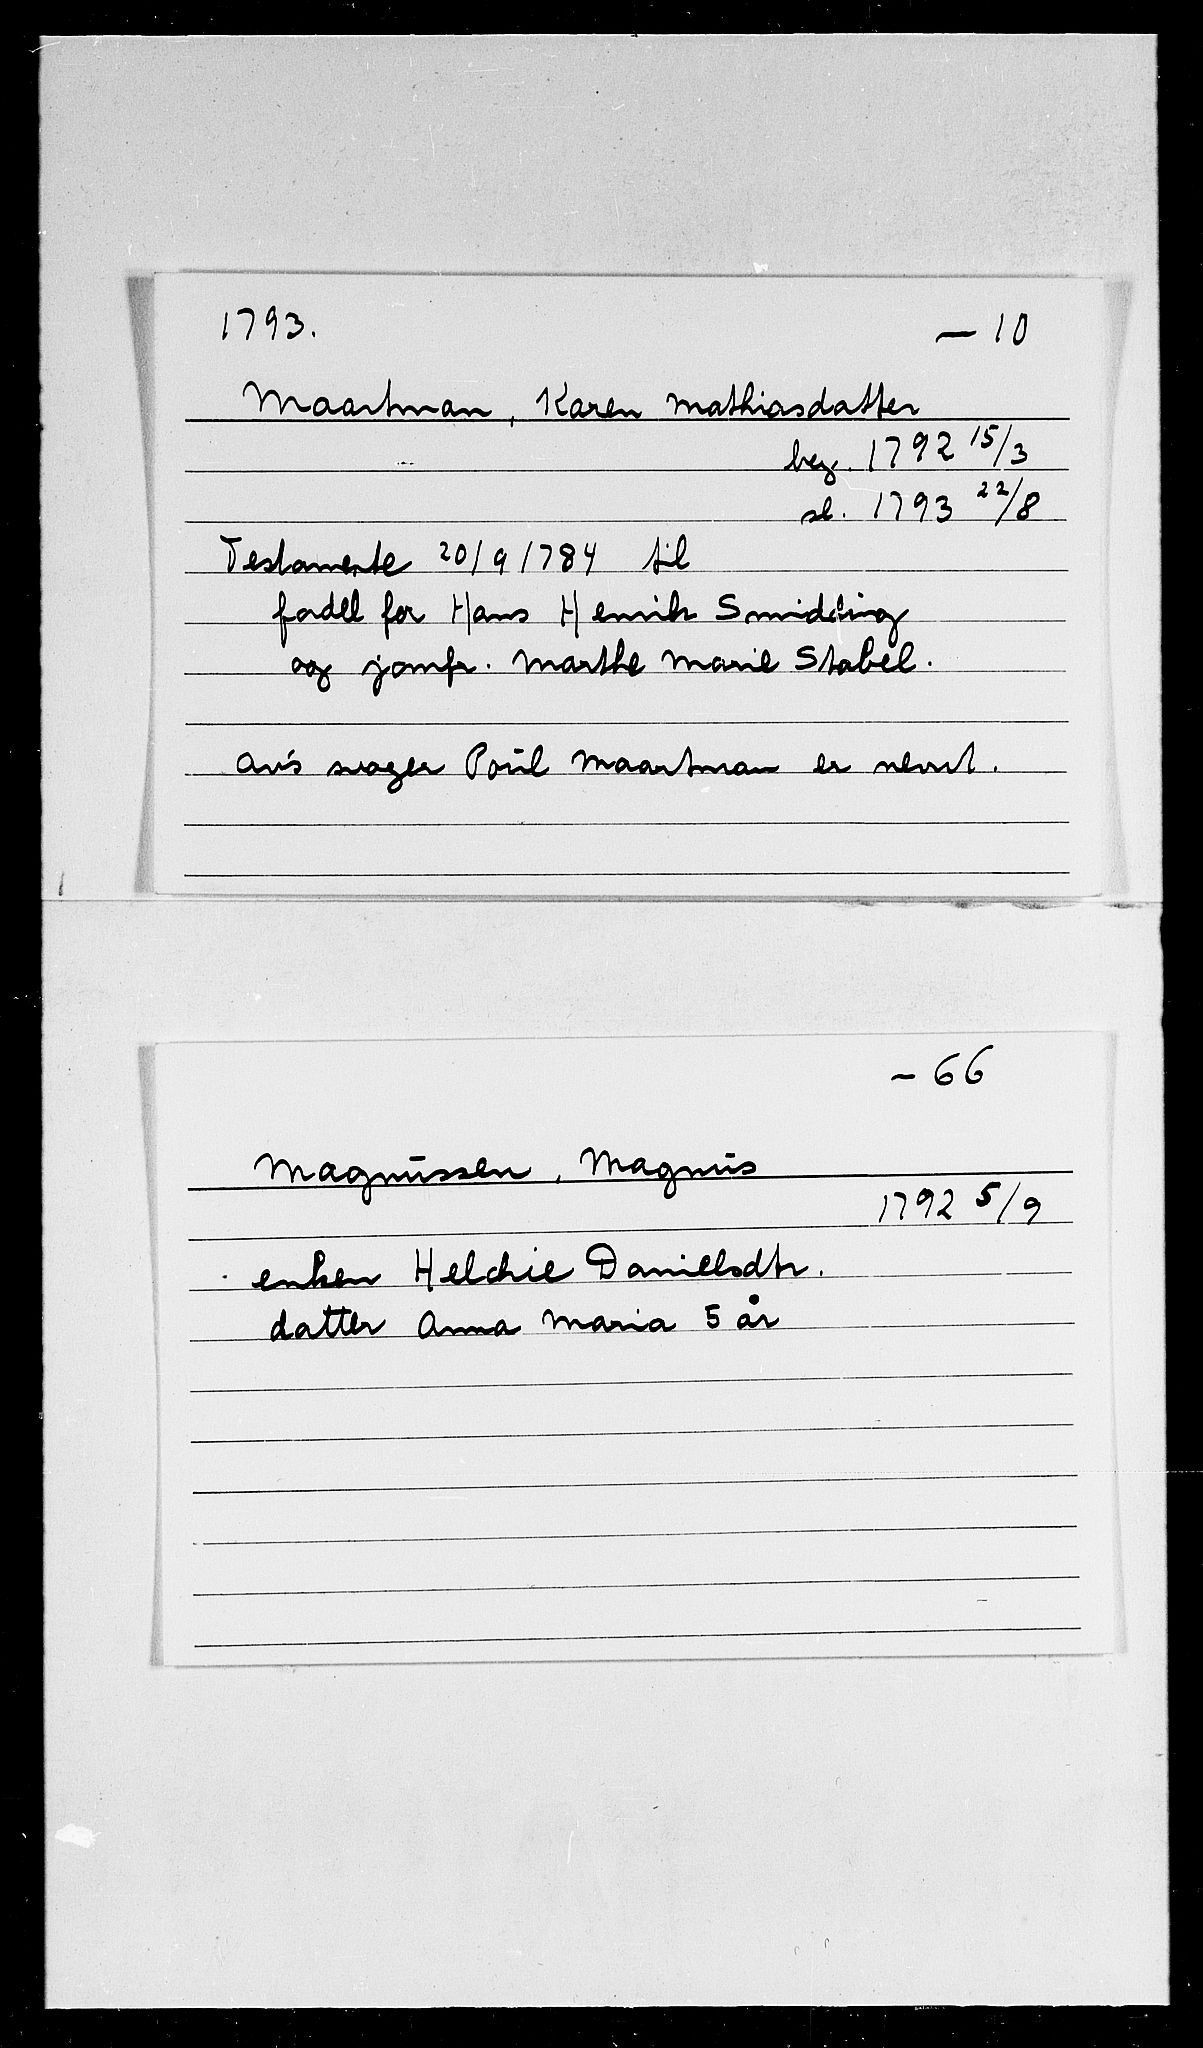 1793. — 10
Maartman, Karen Mathiasdatter
beg. 1792 15/3
sl. 1793 22/8
Testamente 20/9 1784 til
fordel for Hans Henrik Smidding
og jomfr. Marthe Marie Stabel.
Av's svoger Poul Maartman er nevnt.
– 66
Magnussen, Magnus
1792 5/9
enken Helchie Danielsdtr.
datter Anna Maria 5 år